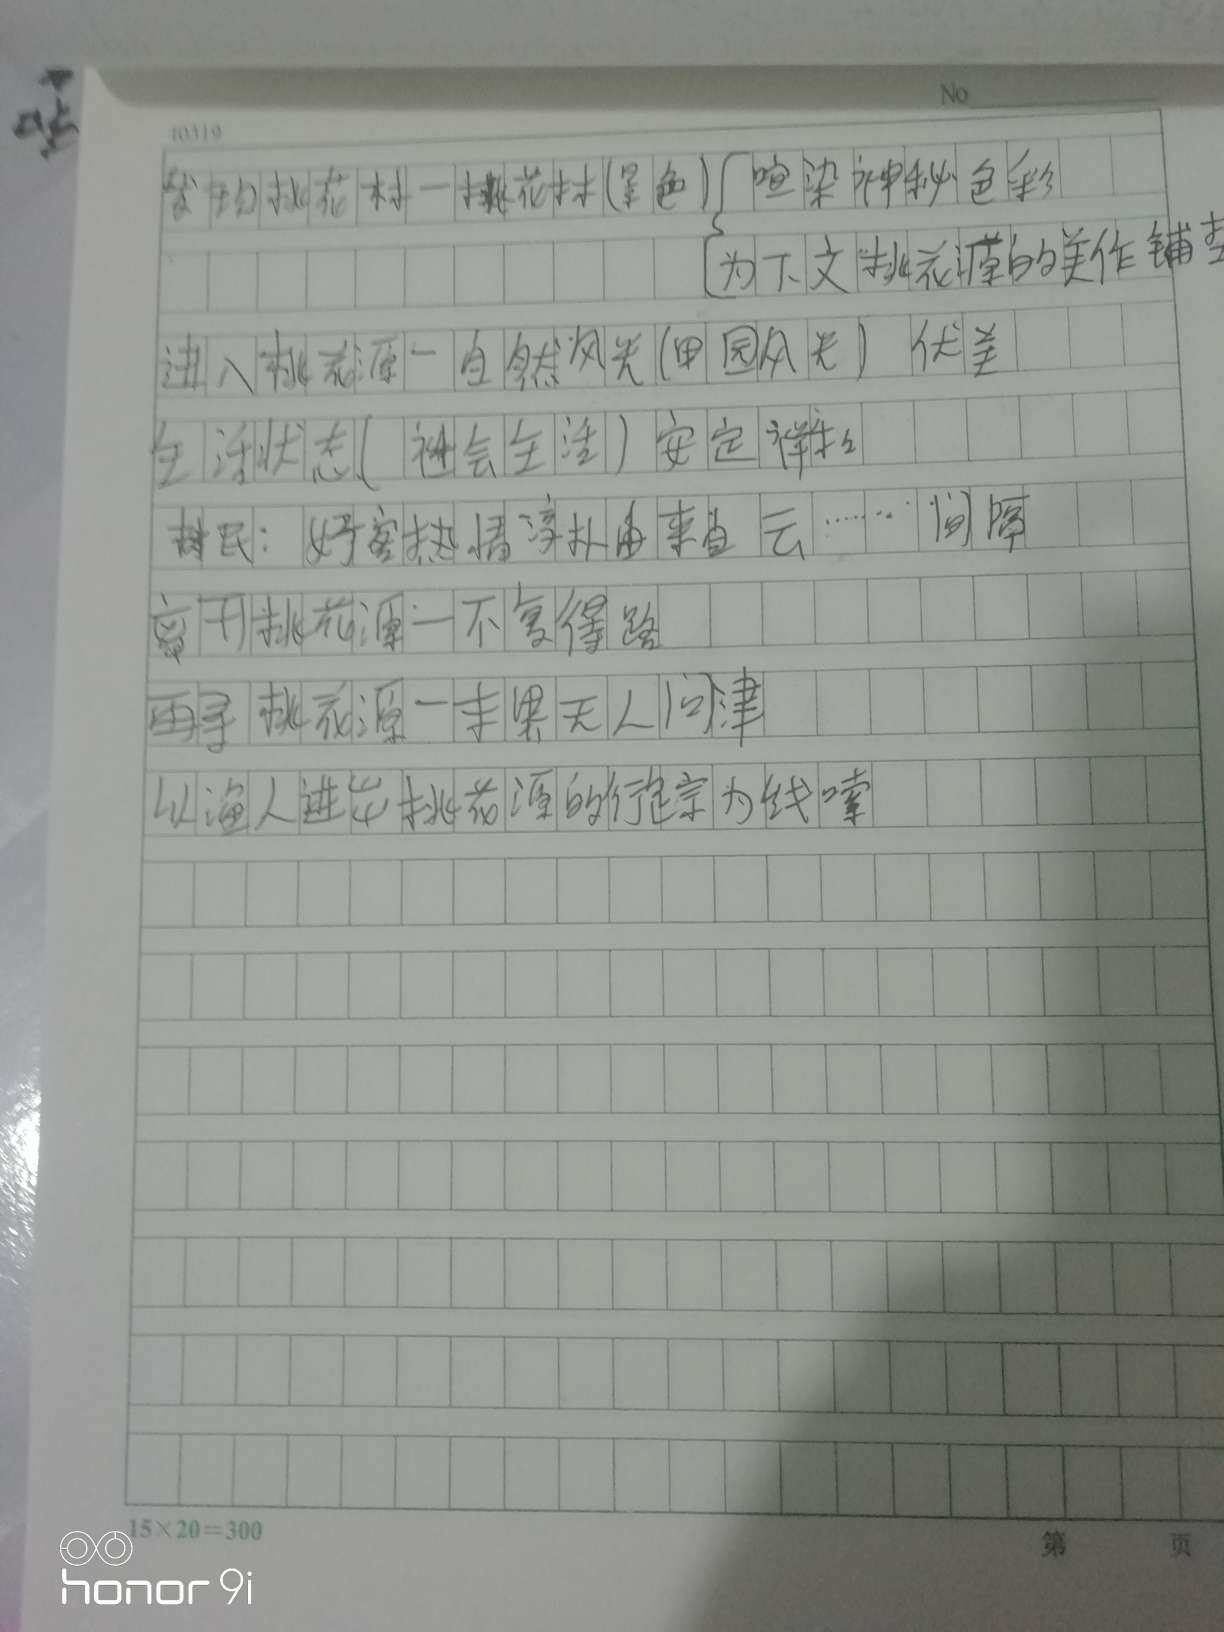 No
10319
发现桃花村一桃花林(景色){渲染神秘色彩
为下文桃花源的美作铺垫
进入桃花源一自然风光(田园风光) 优美
生活状态(社会生活)安定祥和
村民:好客热情淳朴由来自云……间隔
离开桃花源一不复得路
再寻桃花源一未果无人问津
以渔人进出桃花源的行踪为线嗦
15×20=300
第 页
honor 9i